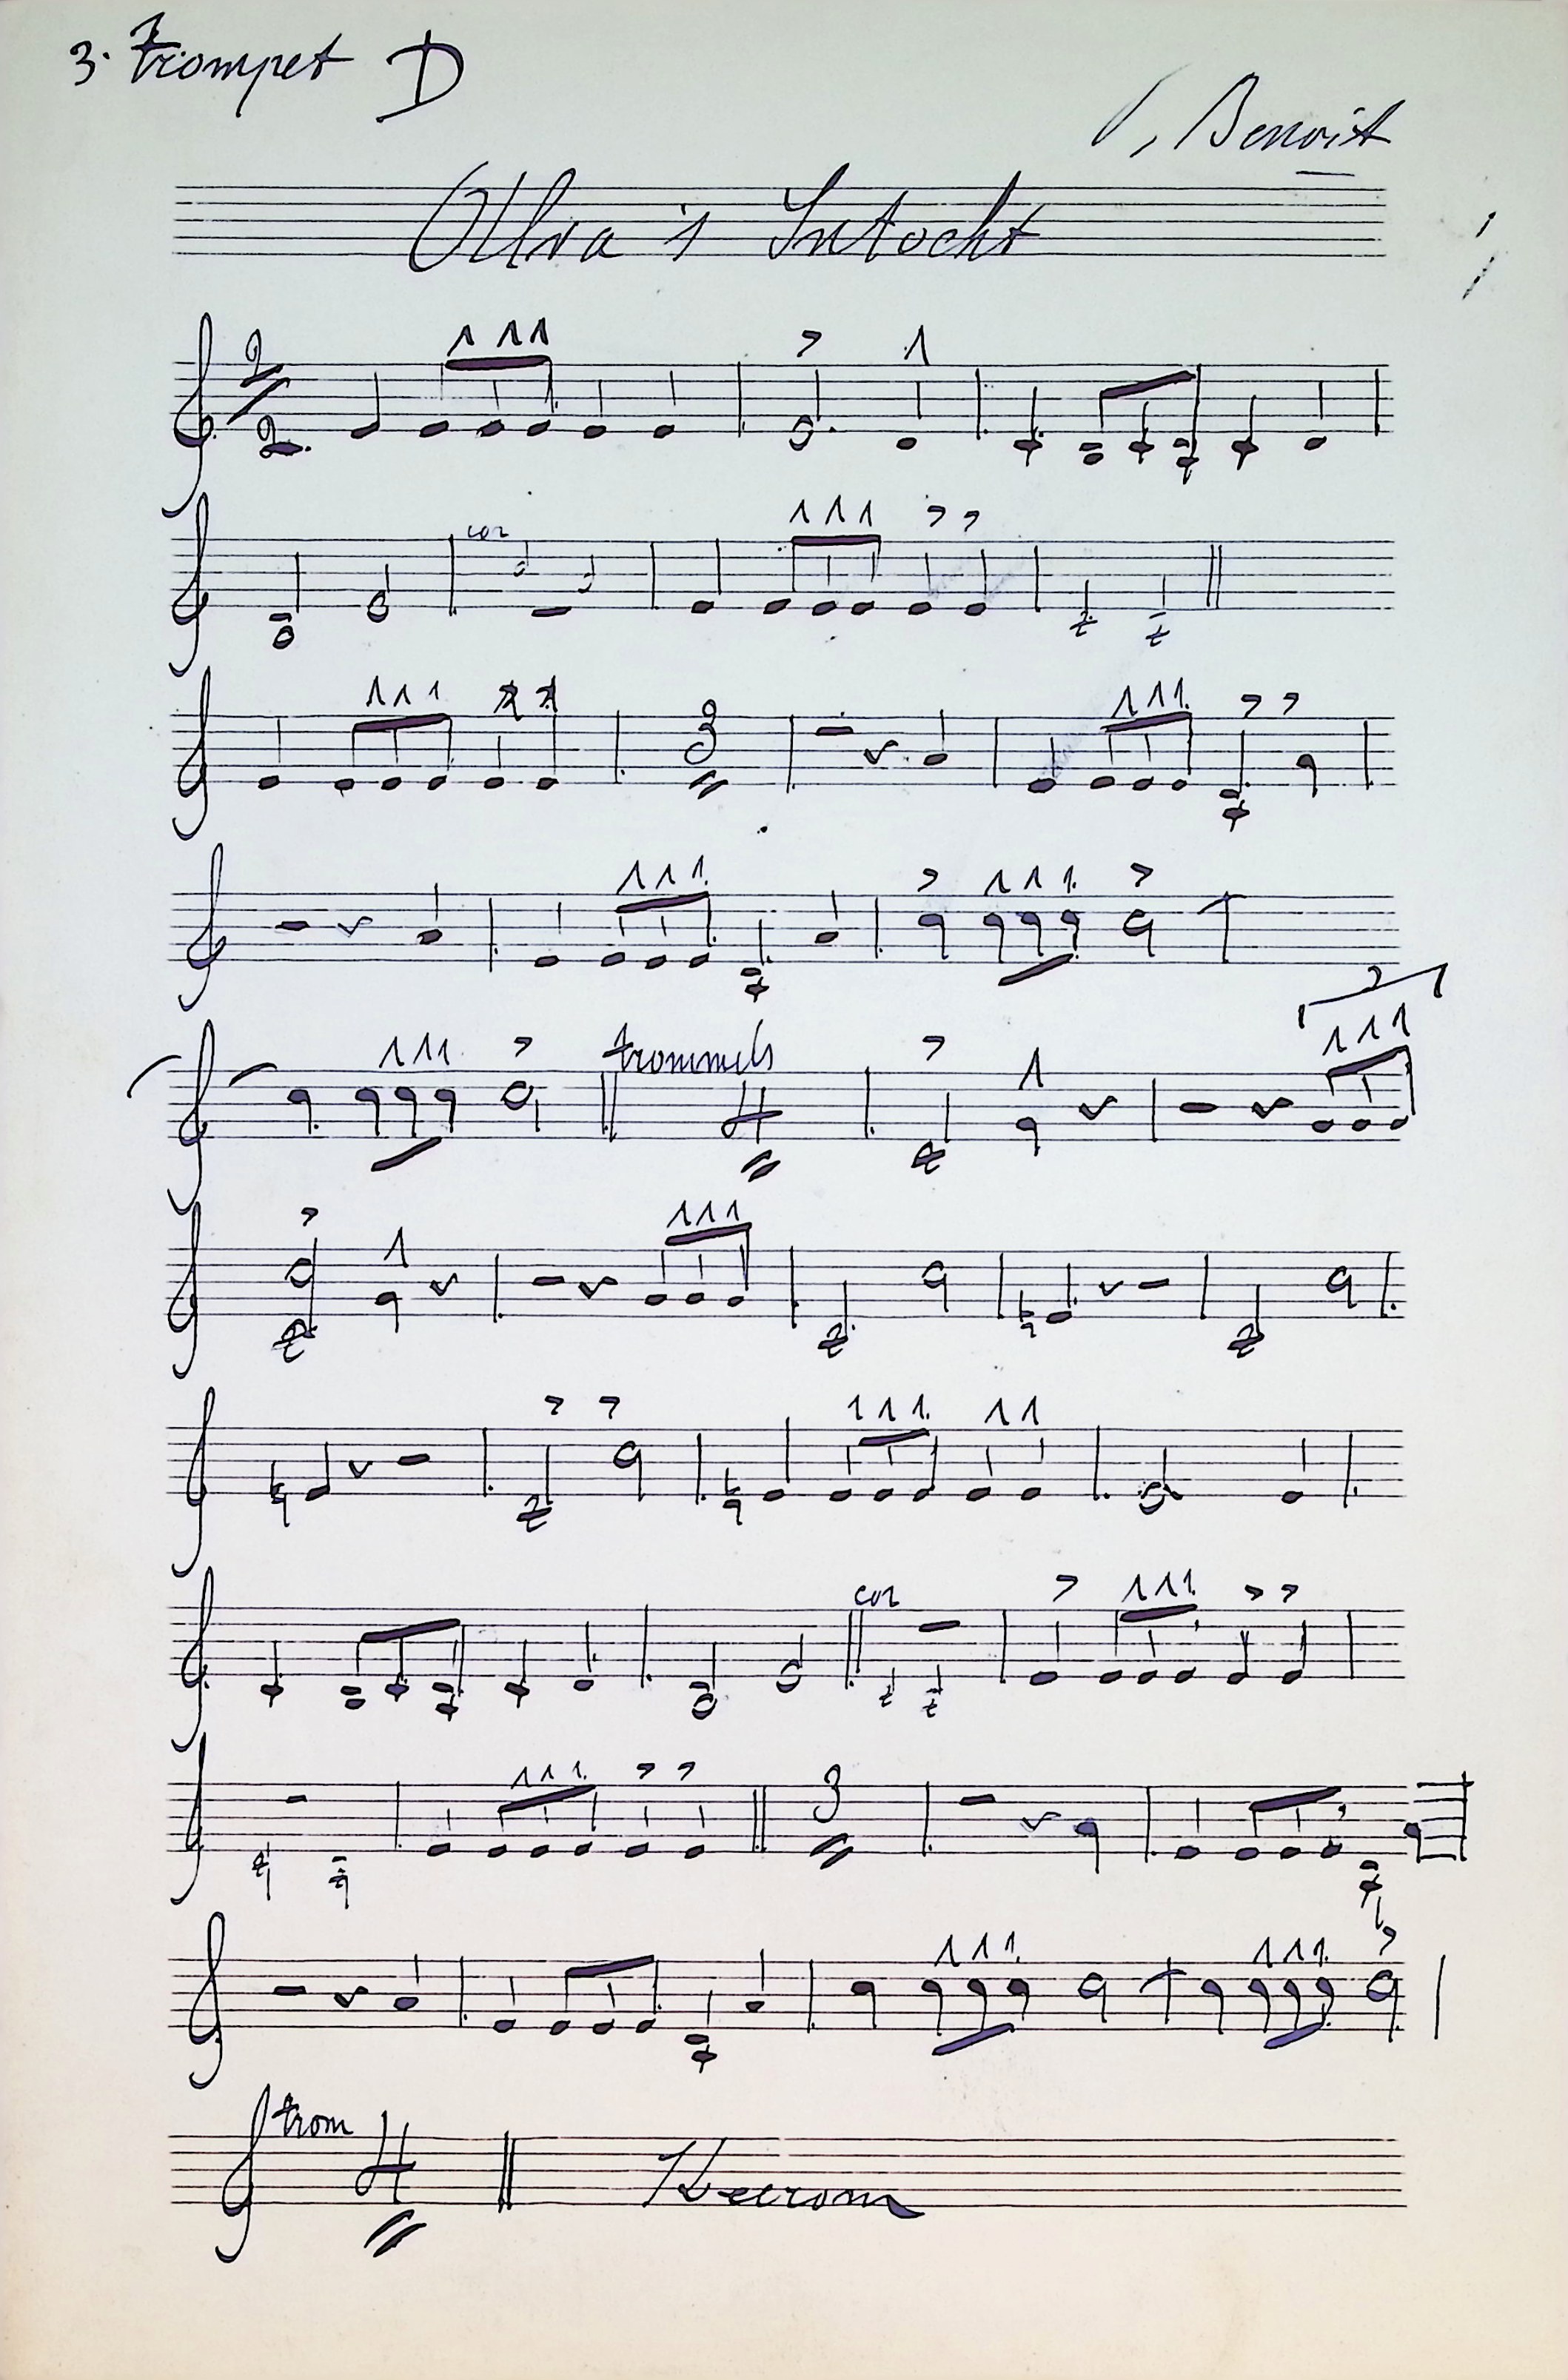 3. trompet D
P. Benoit
Alva's Intocht
2
2
cor
3
trommels
4
3
cor
3
trom
4
Keerom